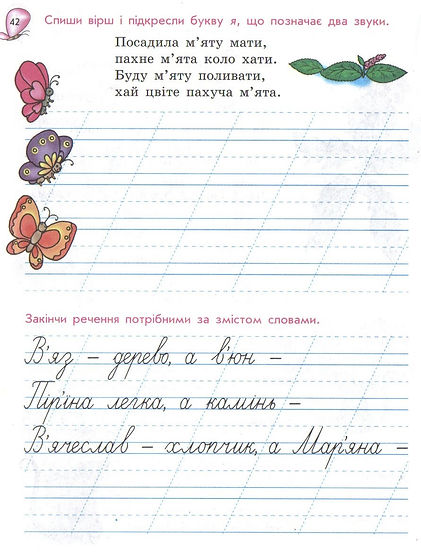 42
Спиши вірш і підкресли букву я, що позначає два звуки.
Посадила м'яту мати,
пахне м'ята коло хати.
Буду м'яту поливати,
хай цвіте пахуча м'ята.
Закінчи речення потрібними за змістом словами.
В'яз – дерево, а в'юн –
Пір'їна легка, а камінь –
В'ячеслав – хлопчик, а Мар'яна –